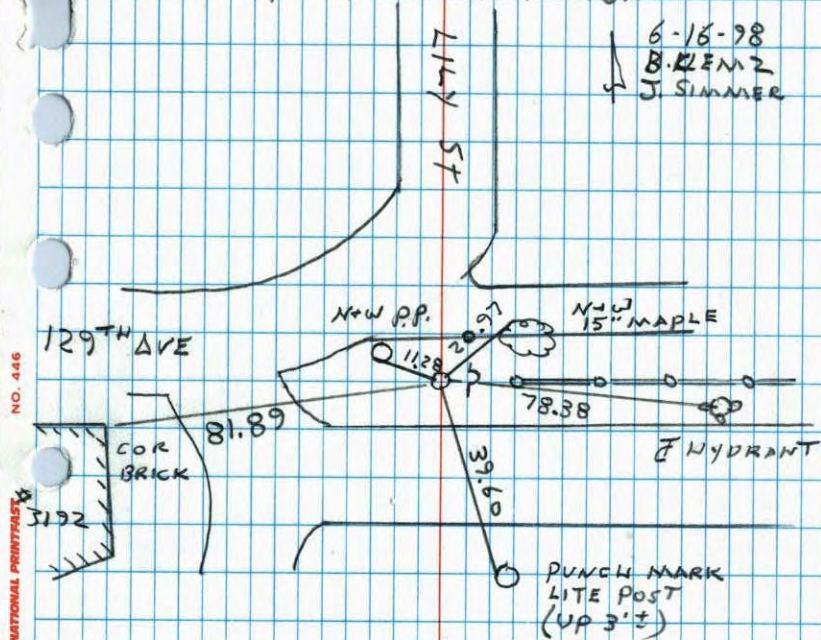 6-16-98
B.KLEMZ
J. SIMMER
LILY ST
N+W P.P.
N+W
15" MAPLE
129TH AVE
11.28
78.38
81.89
COR
BRICK
HYDRANT
39.60
#3192
PUNCH MARK
LITE POST
(UP 3'±)
NO. 446
NATIONAL PRINTFAST